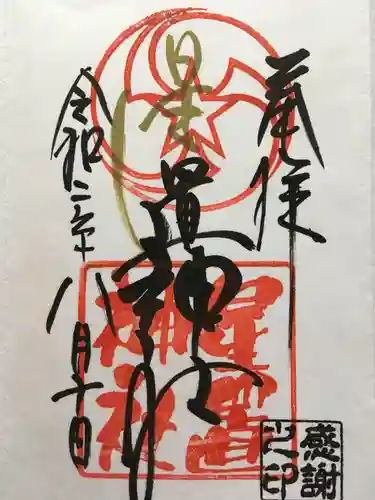 奉拝
星置神社
令和二年八月十日
星置
神社
感謝
之印